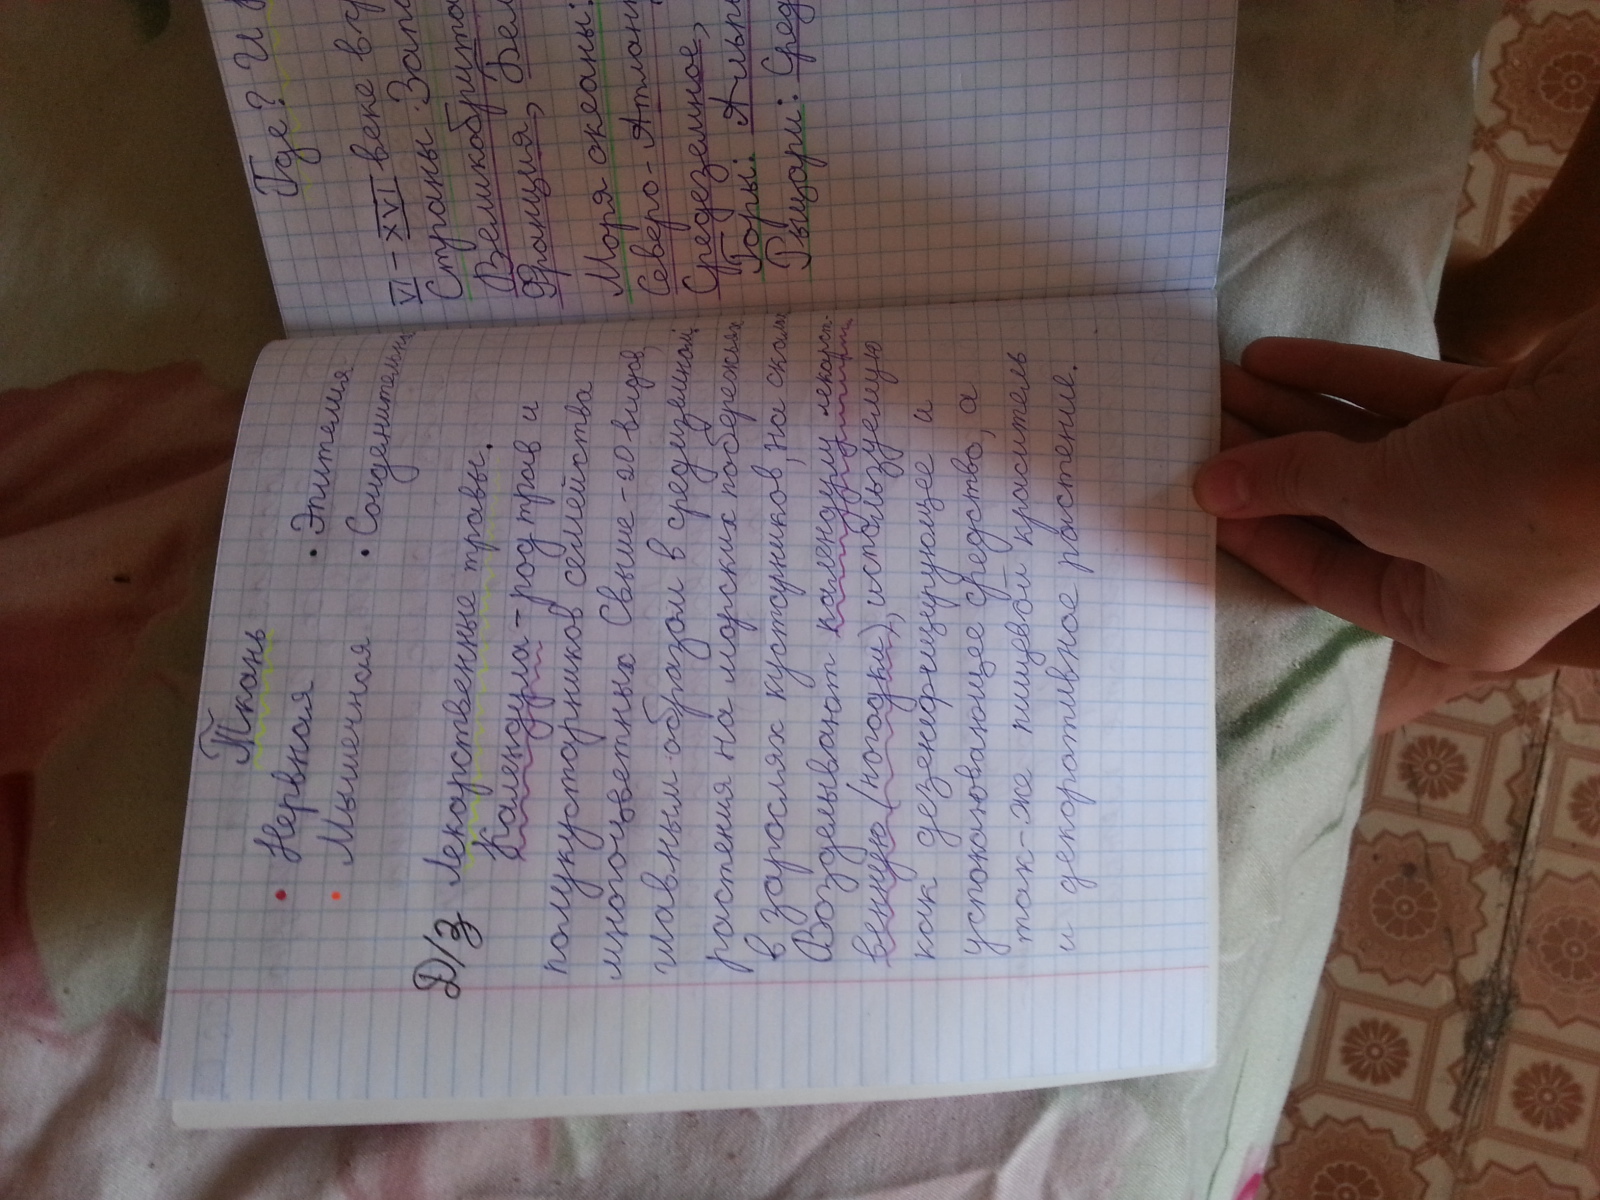 Ткань
• Нервная • Эпителия
• Мышечная • Соеденительна
Д/З Лекарственные травы.
Календула - род трав и
полукустарников семейства
многоцветных Свыше - 20 видов,
главным образом в средиземной
растения на морских побережьях
в зарослях кустарников, на скалы
Возделывают календулу лекарст-
венную (ногодки), используемую
как дезенфицирующее и
успокаювающее средство, а
так-же пищевой краситель
и декоративное растение.
Где? И
VI - XVI веке в
Страны: Запа
Великобрита
Франция, Бел
Моря океаны:
Северо-Атлан
Средеземное,
Горы: Альп
Рыцари: Сред